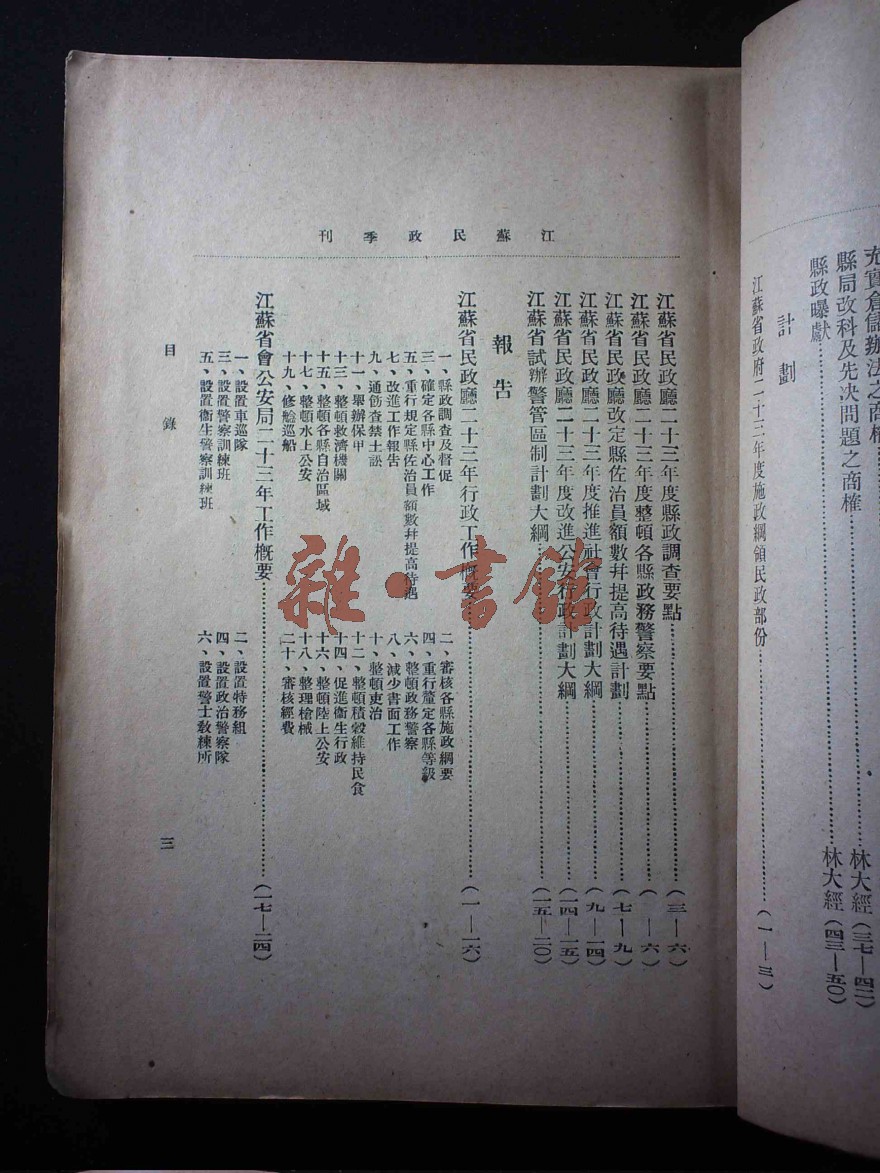 充實倉儲辦法之商榷
縣局改科及先決問題之商榷……林大經(三七—四二)
縣政曝獻……林大經(四三—五〇)
計劃
江蘇省政府二十三年度施政綱領民政部份……(一—三)
江蘇民政季刊
江蘇省民政廳二十三年度縣政調查要點……(三—六)
江蘇省民政廳二十三年度整頓各縣政務警察要點……(—六)
江蘇省民政廳改定縣佐治員額數幷提高待遇計劃……(七—九)
江蘇省民政廳二十三年度推進社會行政計劃大綱……(九—一四)
江蘇省民政廳二十三年度改進公安行政計劃大綱……(一四—一五)
江蘇省試辦警管區制計劃大綱……(一五—二〇)
報告
江蘇省民政廳二十三年行政工作概要……(一—一六)
一、縣政調查及督促 二、審核各縣施政綱要
三、確定各縣中心工作 四、重行釐定各縣等級
五、重行規定縣佐治員額數幷提高待遇 六、整頓政務警察
七、改進工作報告 八、減少書面工作
九、通飭查禁土訟 十、整頓吏治
十一、舉辦保甲 十二、整頓積穀維持民食
十三、整頓救濟機關 十四、促進衞生行政
十五、整頓各縣自治區域 十六、整頓陸上公安
十七、整頓水上公安 十八、整理槍械
十九、修艌巡船 二十、審核經費
江蘇省會公安局二十三年工作概要……(一七—二四)
一、設置車巡隊 二、設置特務組
三、設置警察訓練班 四、設置政治警察隊
五、設置衞生警察訓練班 六、設置警士敎練所
目錄
三
雜·書館